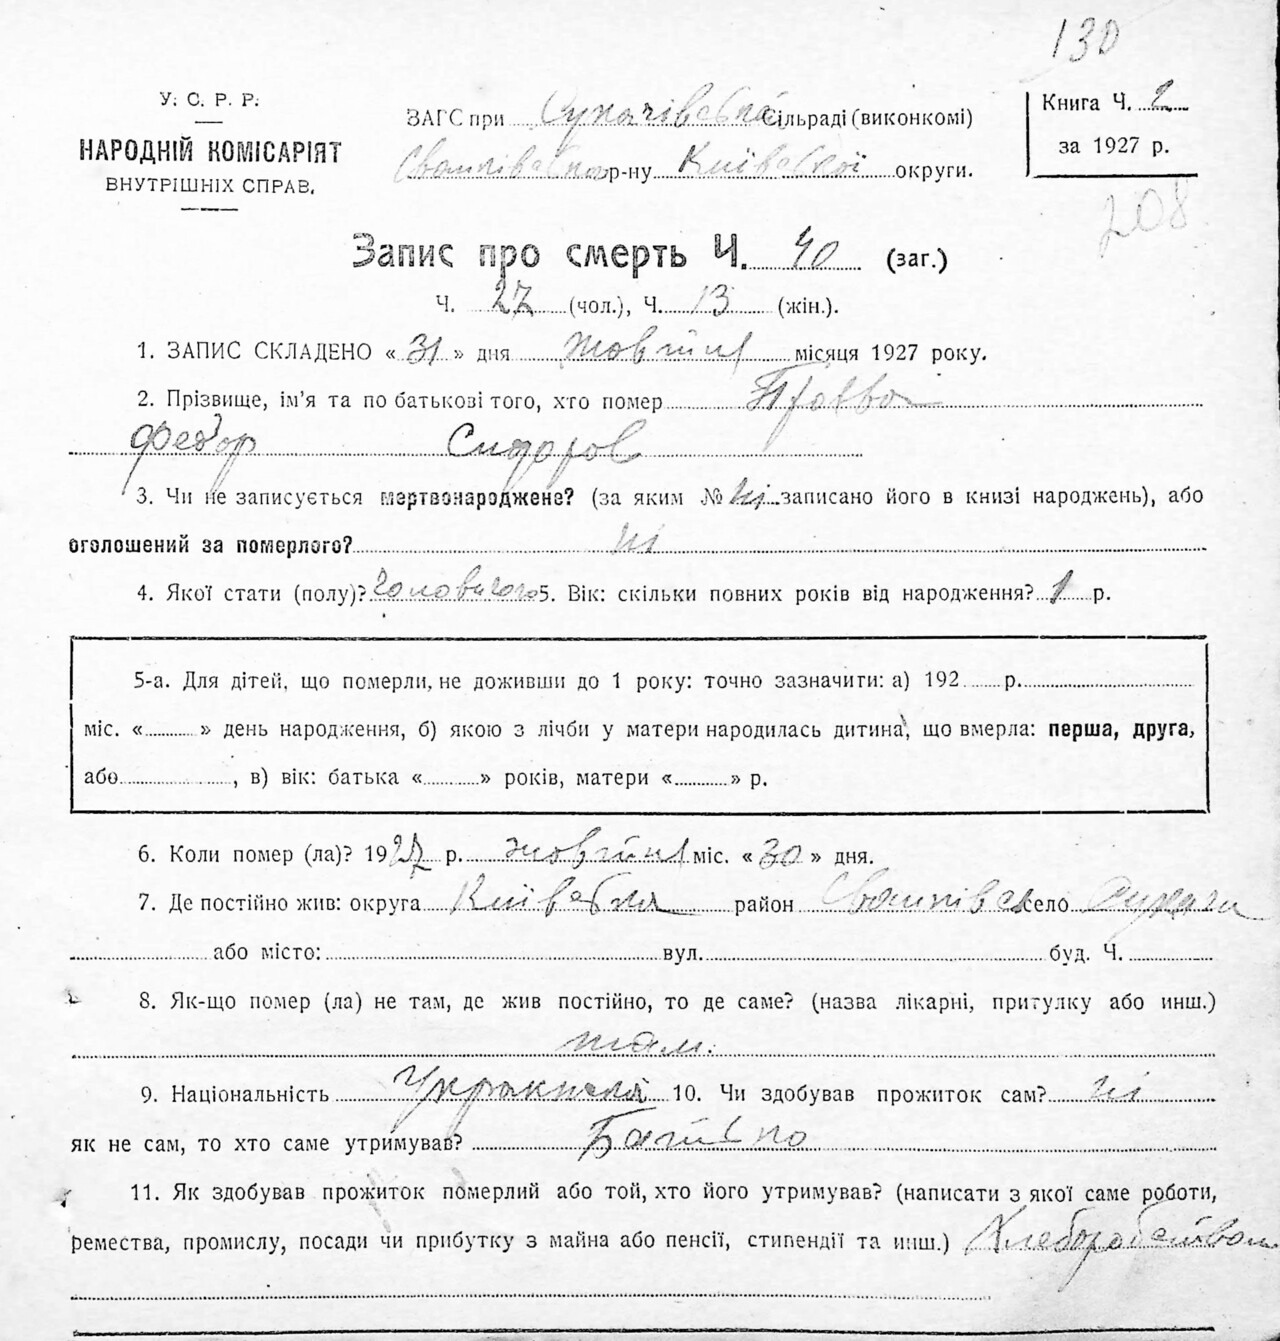 130
У. С. Р. Р.
НАРОДНІЙ КОМІСАРІЯТ
ВНУТРІШНІХ СПРАВ.
ЗАГС при Сукачівській Сільраді (виконкомі)
р-ну Київської округи.
Книга Ч. 2
за 1927 р.
208
Запис про смерть Ч. 40 (заг.)
Ч. 27 (чол.), Ч. 13 (жін.).
1. ЗАПИС СКЛАДЕНО « 31 » дня жовтня місяця 1927 року.
2. Прізвище, ім'я та по батькові того, хто помер
Федор Сидоров
3. Чи не записується мертвонароджене? (за яким № ні записано його в книзі народжень), або
оголошений за померлого? ні
4. Якої стати (полу)? чоловичого 5. Вік: скільки повних років від народження? 1 р.
5-а. Для дітей, що померли, не доживши до 1 року: точно зазначити: а) 192 р.
міс. « » день народження, б) якою з лічби у матери народилась дитина, що вмерла: перша, друга,
або , в) вік: батька « » років, матери « » р.
6. Коли помер (ла)? 1927 р. жовтня міс. « 30 » дня.
7. Де постійно жив: округа Київська район село Сукачи
або місто: вул. буд. Ч.
8. Як-що помер (ла) не там, де жив постійно, то де саме? (назва лікарні, притулку або инш.)
там.
9. Національність 10. Чи здобував прожиток сам? ні
як не сам, то хто саме утримував? Батько
11. Як здобував прожиток померлий або той, хто його утримував? (написати з якої саме роботи,
ремества, промислу, посади чи прибутку з майна або пенсії, стипендії та инш.) Хлеборобством